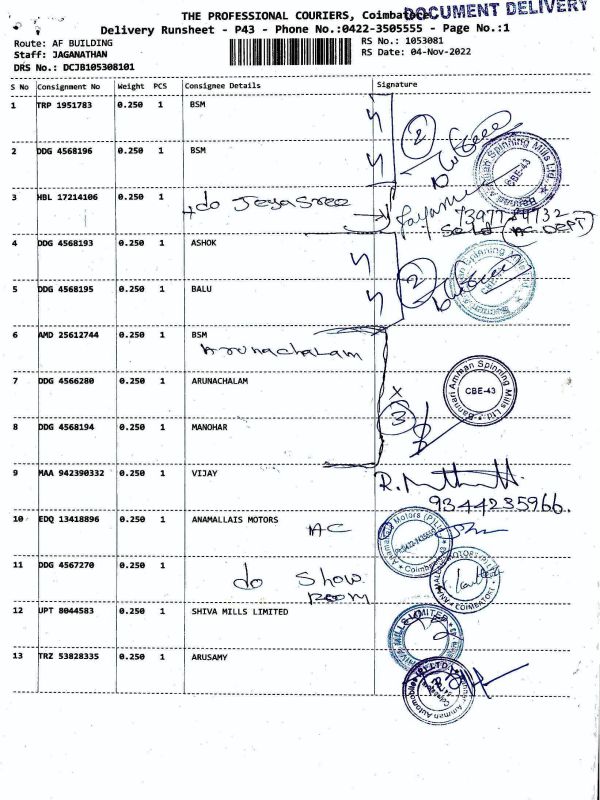 DOCUMENT DELIVERY
THE PROFESSIONAL COURIERS, Coimbatore
Delivery Runsheet - P43 - Phone No.:0422-3505555 - Page No.:1
Route: AF BUILDING
Staff: JAGANATHAN
DRS No.: DCJB105308101
RS No.: 1053081
RS Date: 04-Nov-2022
S No Consignment No Weight PCS Consignee Details Signature
1 TRP 1951783 0.250 1 BSM
2 DDG 4568196 0.250 1 BSM
2
Bannari Amman Spinning Mills Ltd. CBE-43
3 HBL 17214106 0.250 1 do Jeyasree
7397784732
4 DDG 4568193 0.250 1 ASHOK
5 DDG 4568195 0.250 1 BALU
2
6 AMD 25612744 0.250 1 BSM
Arunachalam
7 DDG 4566280 0.250 1 ARUNACHALAM
Bannari Amman Spinning Mills Ltd. CBE-43
8 DDG 4568194 0.250 1 MANOHAR
x 3
9 MAA 942390332 0.250 1 VIJAY
9344235966
10 EDQ 13418896 0.250 1 ANAMALLAIS MOTORS
AC
11 DDG 4567270 0.250 1 do Show
room
12 UPT 8044583 0.250 1 SHIVA MILLS LIMITED
SHIVA MILLS LIMITED
13 TRZ 53828335 0.250 1 ARUSAMY